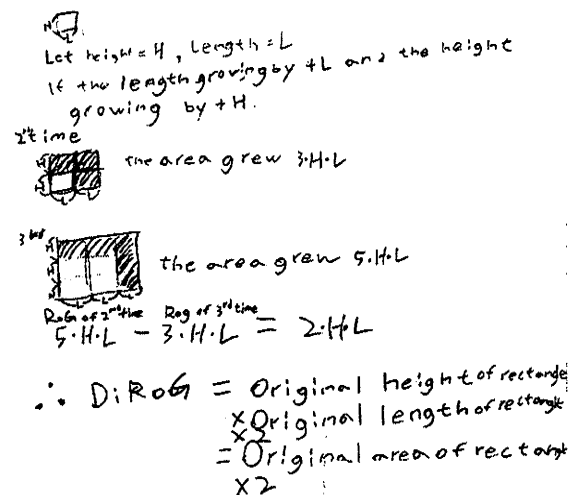 H
L
Let height = H, Length = L
If the length groving by +L and the height
growing by +H.
2nd time
H
H
L L
the area grew 3·H·L
3rd
H
H
H
L L L
the area grew 5·H·L
RoG of 2nd time Rog of 3rd time
5·H·L − 3·H·L = 2·H·L
∴ DiRoG = Original height of rectangle
× Original length of rectangle
×2
= Original area of rectangle
×2